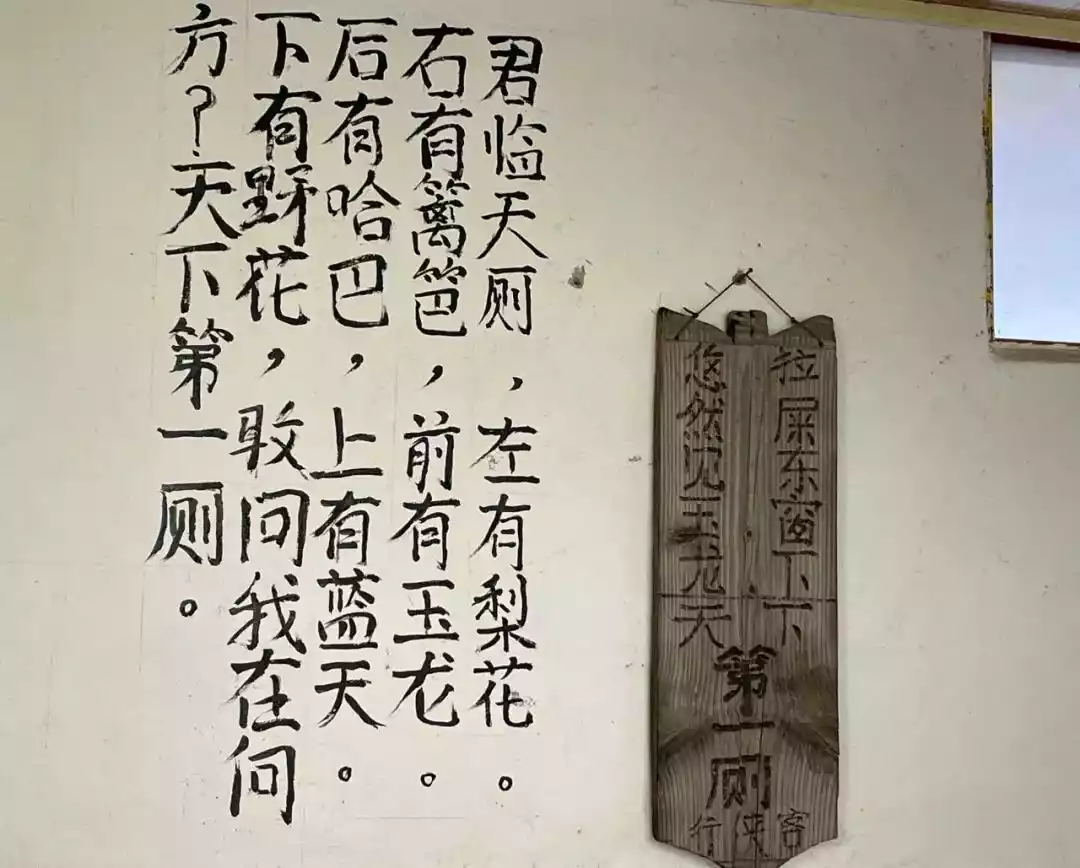 君临天厕，左有梨花。
右有篱笆，前有玉龙。
后有哈巴，上有蓝天。
下有野花，敢问我在何
方？天下第一厕。
拉屎东窗下
悠然见玉龙
天下
第一厕
行侠客